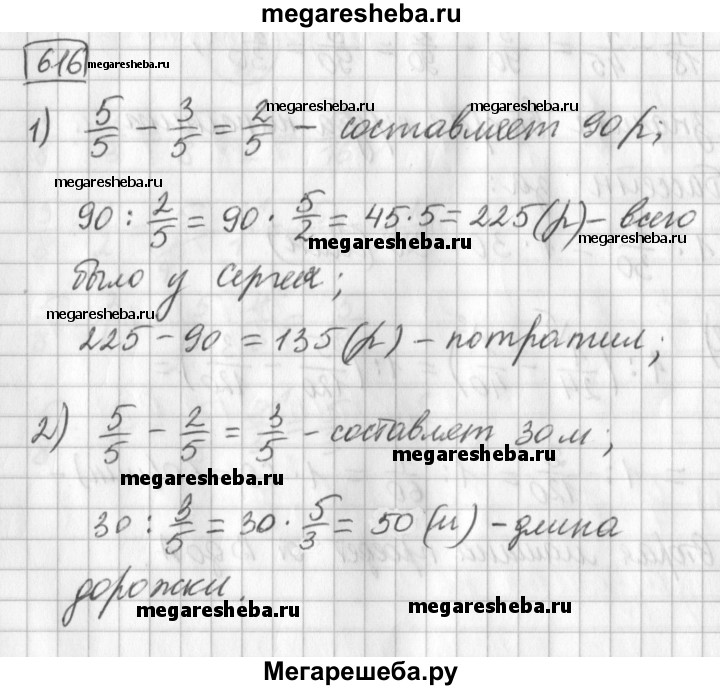 megaresheba.ru
616 megaresheba.ru
1) 5/5 − 3/5 = 2/5 − составляет 90 р;
megaresheba.ru megaresheba.ru
megaresheba.ru
90 : 2/5 = 90 · 5/2 = 45·5 = 225 (р) − всего
megaresheba.ru megaresheba.ru
было у Сергея;
megaresheba.ru
225 − 90 = 135 (р) − потратил;
2) 5/5 − 2/5 = 3/5 − составляет 30 м;
megaresheba.ru
megaresheba.ru
30 : 3/5 = 30 · 5/3 = 50 (м) − длина
дорожки.
megaresheba.ru megaresheba.ru
Мегарешеба.ру